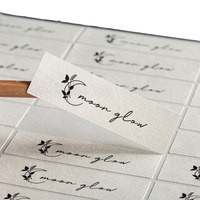 moon glow
moon glow
moon glow
moon glow
moon glow
moon glow
moon glow